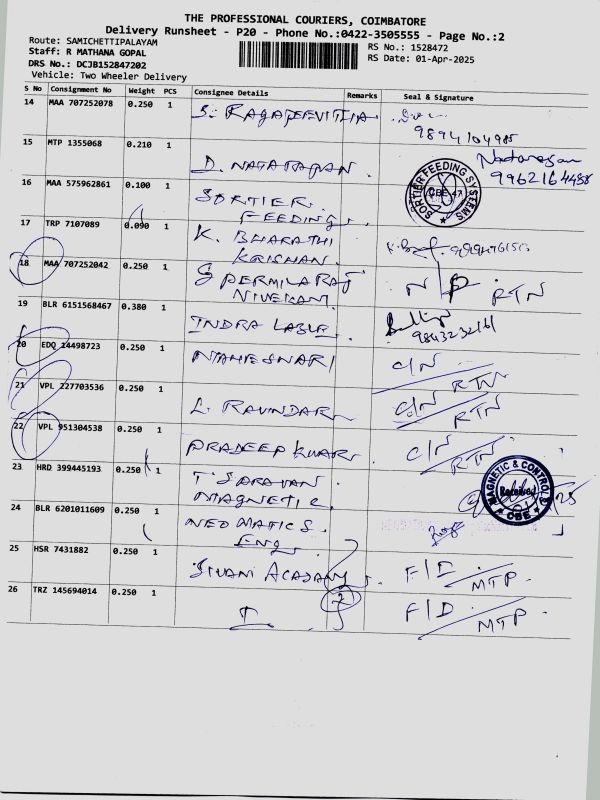 THE PROFESSIONAL COURIERS, COIMBATORE
Delivery Runsheet - P20 - Phone No.:0422-3505555 - Page No.:2
Route: SAMICHETTIPALAYAM
Staff: R MATHANA GOPAL
RS No.: 1528472
DRS No.: DCJB152847202
RS Date: 01-Apr-2025
Vehicle: Two Wheeler Delivery
S No Consignment No Weight PCS Consignee Details Remarks Seal & Signature
14 MAA 707252078 0.250 1 S. RAGAJEEVITHA
9894104985
15 MTP 1355068 0.210 1 D. NATARAJAN Natarajan
9962164488
16 MAA 575962861 0.100 1 SORTIER FEEDING
SORTIER FEEDING SYSTEMS CBE 47
17 TRP 7107089 0.090 1 K. BHARATHI KRISHNAN
18 MAA 707252042 0.250 1 NIVEKANT N/D RTN
19 BLR 6151568467 0.380 1 INDRA LABLE
9843232161
20 EDQ 14498723 0.250 1 MAHESWARI C/N RTN
21 VPL 227703536 0.250 1 L. RAVINDAR C/N RTN
22 VPL 951304538 0.250 1 PRADEEP KUAR C/N RTN
23 HRD 399445193 0.250 1 T SARAVAN MAGNETIC
MAGNETIC & CONTROLS Received CBE
24 BLR 6201011609 0.250 1 NEOMATICS Eng
25 HSR 7431882 0.250 1 SIVAM ACADAMY F/D MTP
26 TRZ 145694014 0.250 1 I 2 F/D MTP